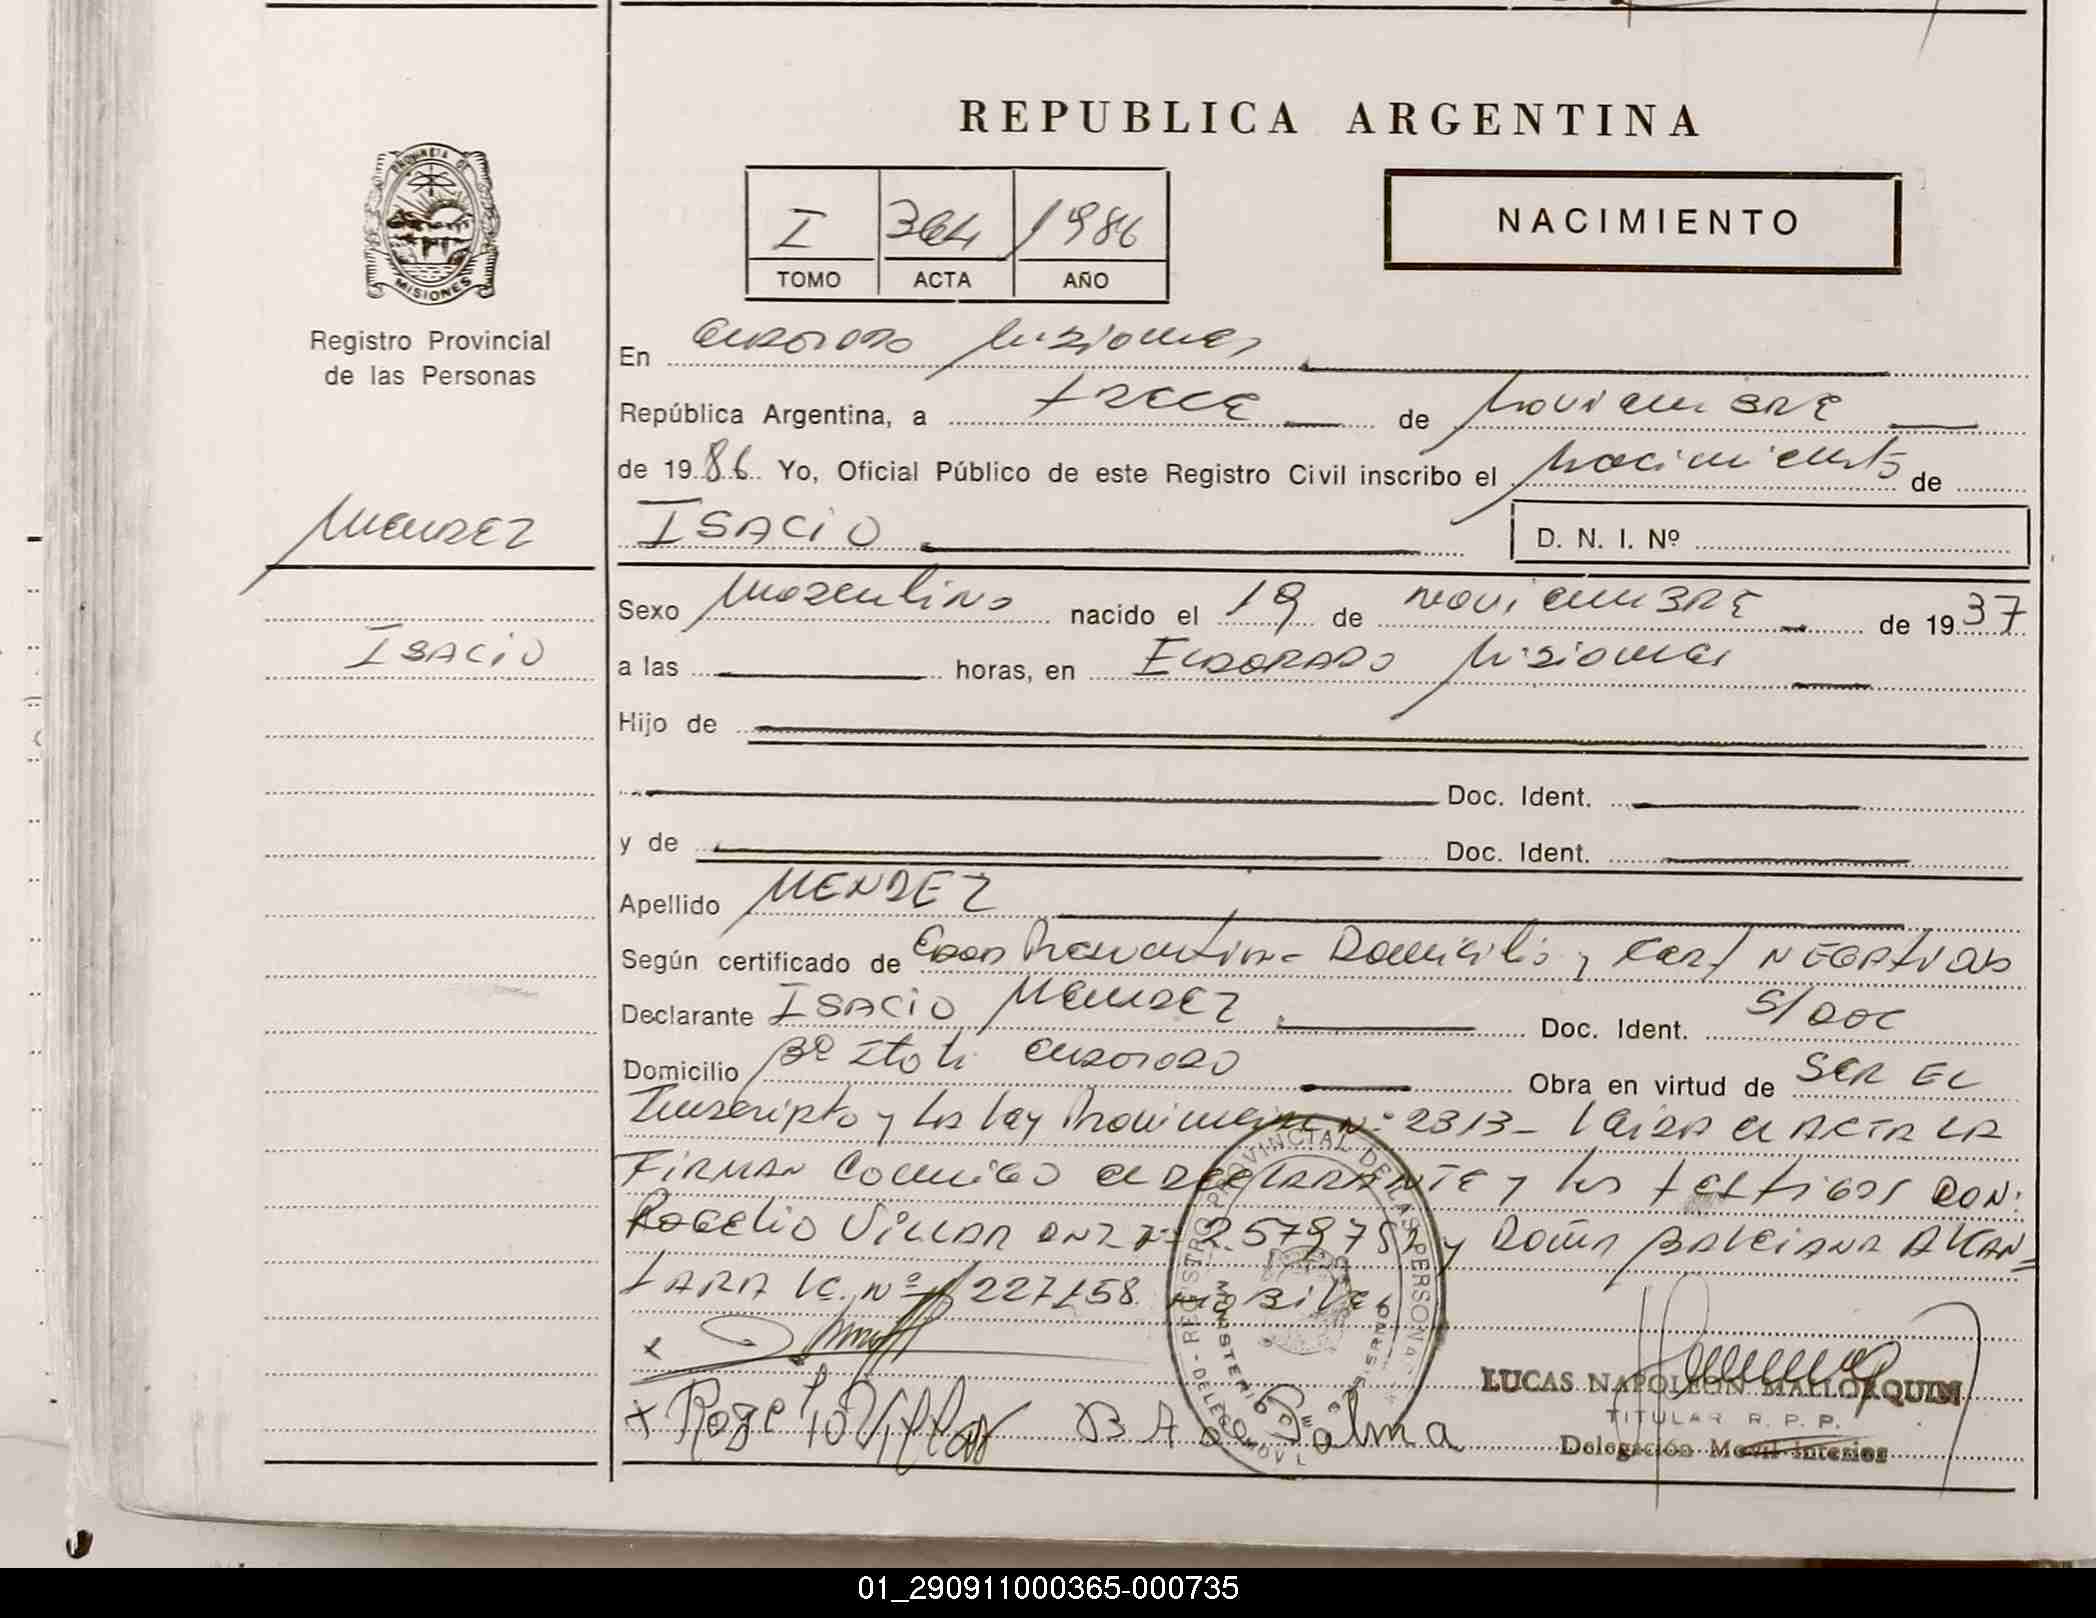 REPUBLICA ARGENTINA
PROVINCIA DE
MISIONES
Registro Provincial
de las Personas
I 364 1986
TOMO ACTA AÑO
NACIMIENTO
En Eldorado Misiones
República Argentina, a trece de Noviembre
de 1986 Yo, Oficial Público de este Registro Civil inscribo el Nacimiento de
MENDEZ
ISACIO
D. N. I. Nº
Sexo Masculino nacido el 19 de Noviembre de 1937
ISACIO
a las horas, en Eldorado Misiones
Hijo de
Doc. Ident.
y de Doc. Ident.
Apellido MENDEZ
Según certificado de Edad Presuntiva - Domicilio y Cert Negativos
Declarante ISACIO MENDEZ Doc. Ident. S/DOC
Domicilio Bº Itati Eldorado Obra en virtud de SER EL
Inscripto y la ley Provincial Nº 2313 - Leida el ACTA LA
Firman Conmigo el DECLARANTE y los testigos DON:
Rogelio Villar DNI Nº y Doña Balciana Alcan=
tara LC. Nº Hábiles
REGISTRO PROVINCIAL DE LAS PERSONAS
MINISTERIO DE GOBIERNO
x Rogelio Villar
B A de Palma
LUCAS NAPOLEON MALLORQUIN
TITULAR R. P. P.
Delegación Movil Interior
01_290911000365-000735